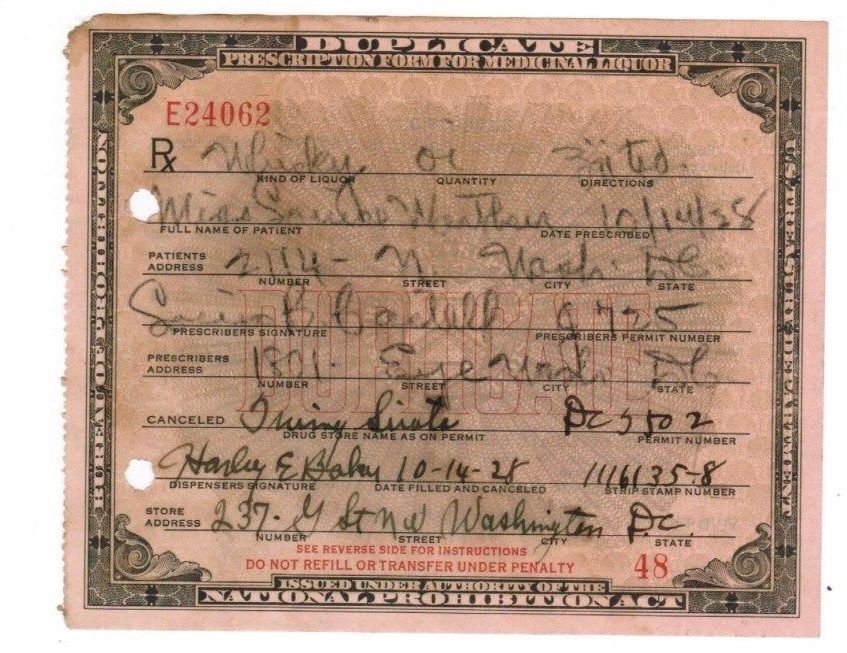 DUPLICATE
PRESCRIPTION FORM FOR MEDICINAL LIQUOR
E24062
Rx Whiskey
KIND OF LIQUOR QUANTITY DIRECTIONS
Miss 10/14/28
FULL NAME OF PATIENT DATE PRESCRIBED
PATIENTS ADDRESS 2114 - N Wash DC
NUMBER STREET CITY STATE
PRESCRIBERS SIGNATURE PRESCRIBERS PERMIT NUMBER
DUPLICATE
PRESCRIBERS ADDRESS 1801 - Eye Wash DC
NUMBER STREET CITY STATE
CANCELED DC
DRUG STORE NAME AS ON PERMIT PERMIT NUMBER
Harley E 10-14-28 1116135-8
DISPENSERS SIGNATURE DATE FILLED AND CANCELED STRIP STAMP NUMBER
STORE ADDRESS 237 - G St NW Washington DC
NUMBER STREET CITY STATE
SEE REVERSE SIDE FOR INSTRUCTIONS
DO NOT REFILL OR TRANSFER UNDER PENALTY 48
ISSUED UNDER AUTHORITY OF THE
NATIONAL PROHIBITION ACT
BUREAU OF PROHIBITION